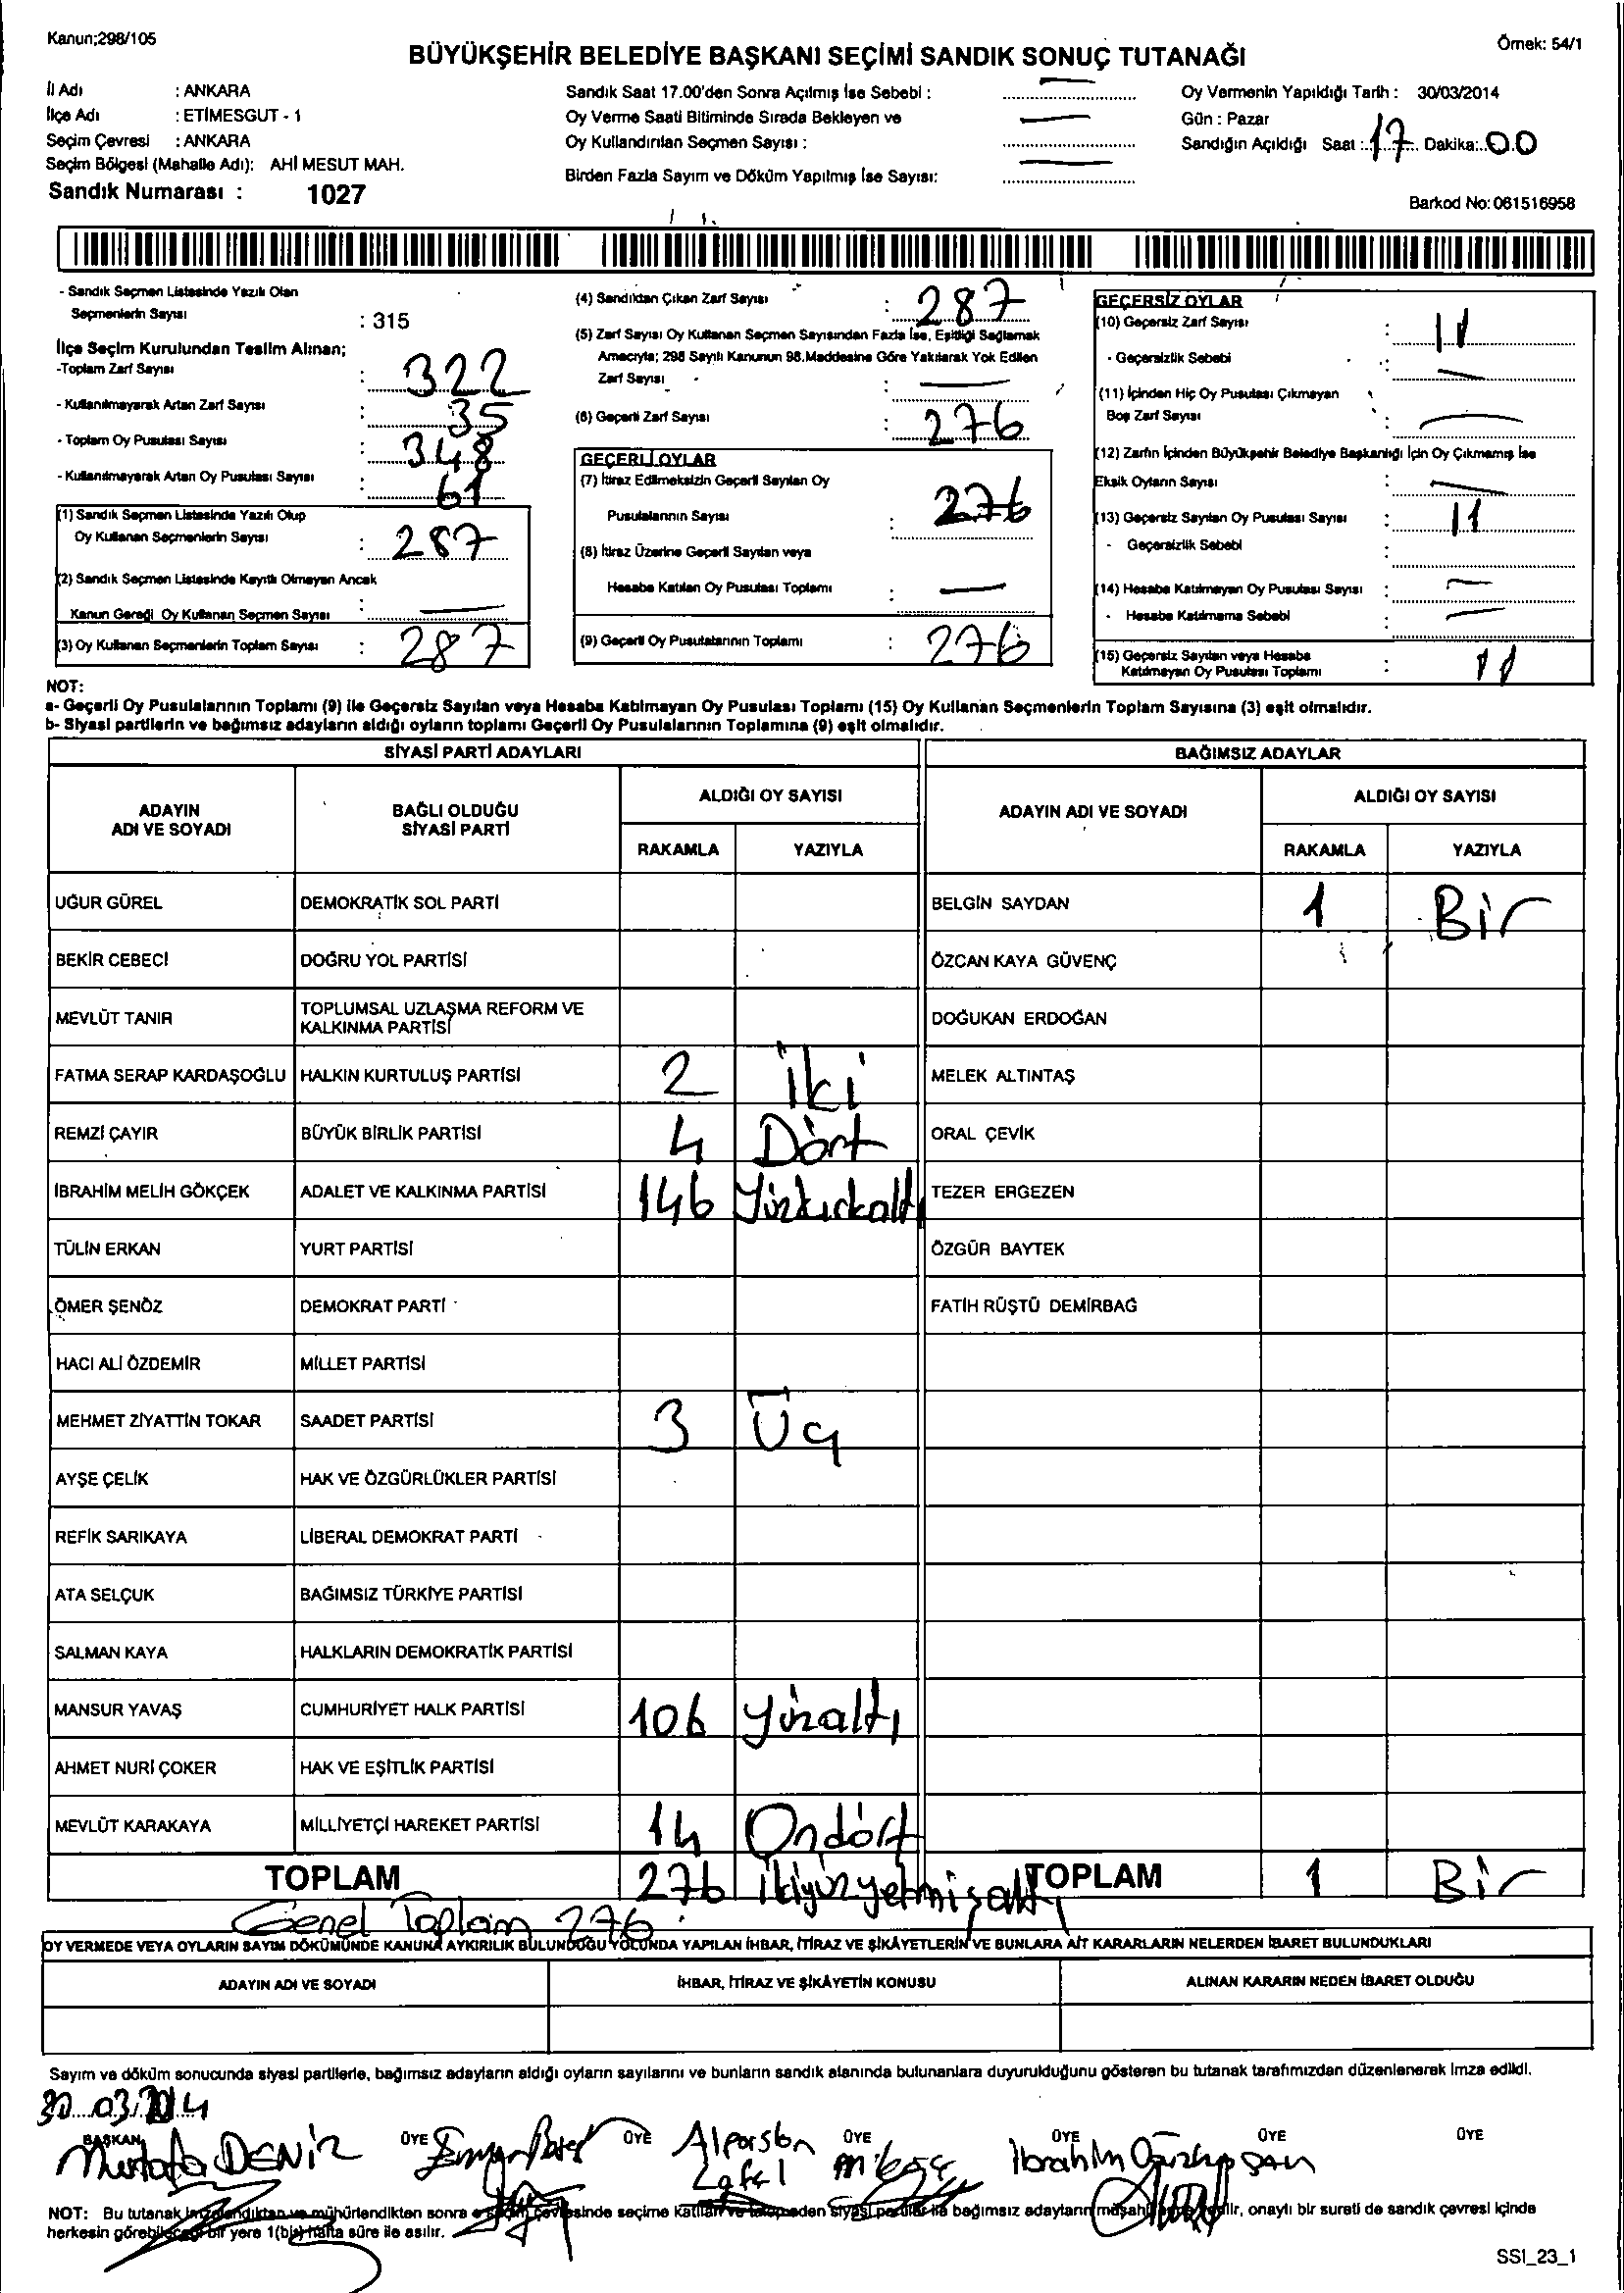 Kanun;298/105
Örnek: 54/1
BÜYÜKŞEHİR BELEDİYE BAŞKANI SEÇİMİ SANDIK SONUÇ TUTANAĞI
İl Adı : ANKARA
İlçe Adı : ETİMESGUT - 1
Seçim Çevresi : ANKARA
Seçim Bölgesi (Mahalle Adı): AHİ MESUT MAH.
Sandık Numarası : 1027
Sandık Saat 17.00'den Sonra Açılmış İse Sebebi :
Oy Verme Saati Bitiminde Sırada Bekleyen ve
Oy Kullandırılan Seçmen Sayısı :
Birden Fazla Sayım ve Döküm Yapılmış İse Sayısı:
Oy Vermenin Yapıldığı Tarih : 30/03/2014
Gün : Pazar
Sandığın Açıldığı Saat : 17 Dakika: 00
Barkod No: 061516958
- Sandık Seçmen Listesinde Yazılı Olan
Seçmenlerin Sayısı : 315
İlçe Seçim Kurulundan Teslim Alınan;
-Toplam Zarf Sayısı : 322
- Kullanılmayarak Artan Zarf Sayısı : 35
- Toplam Oy Pusulası Sayısı : 348
- Kullanılmayarak Artan Oy Pusulası Sayısı : 61
(1) Sandık Seçmen Listesinde Yazılı Olup
Oy Kullanan Seçmenlerin Sayısı : 287
(2) Sandık Seçmen Listesinde Kayıtlı Olmayan Ancak
Kanun Gereği Oy Kullanan Seçmen Sayısı : —
(3) Oy Kullanan Seçmenlerin Toplam Sayısı : 287
(4) Sandıktan Çıkan Zarf Sayısı : 287
(5) Zarf Sayısı Oy Kullanan Seçmen Sayısından Fazla İse, Eşitliği Sağlamak
Amacıyla; 298 Sayılı Kanunun 98.Maddesine Göre Yakılarak Yok Edilen
Zarf Sayısı : —
(6) Geçerli Zarf Sayısı : 276
GEÇERLİ OYLAR
(7) İtiraz Edilmeksizin Geçerli Sayılan Oy
Pusulalarının Sayısı : 276
(8) İtiraz Üzerine Geçerli Sayılan veya
Hesaba Katılan Oy Pusulası Toplamı : —
(9) Geçerli Oy Pusulalarının Toplamı : 276
GEÇERSİZ OYLAR
(10) Geçersiz Zarf Sayısı : 11
- Geçersizlik Sebebi : —
(11) İçinden Hiç Oy Pusulası Çıkmayan
Boş Zarf Sayısı : —
(12) Zarfın İçinden Büyükşehir Belediye Başkanlığı İçin Oy Çıkmamış İse
Eksik Oyların Sayısı : —
(13) Geçersiz Sayılan Oy Pusulası Sayısı : 11
- Geçersizlik Sebebi :
(14) Hesaba Katılmayan Oy Pusulası Sayısı : —
- Hesaba Katılmama Sebebi : —
(15) Geçersiz Sayılan veya Hesaba
Katılmayan Oy Pusulası Toplamı : 11
NOT:
a- Geçerli Oy Pusulalarının Toplamı (9) ile Geçersiz Sayılan veya Hesaba Katılmayan Oy Pusulası Toplamı (15) Oy Kullanan Seçmenlerin Toplam Sayısına (3) eşit olmalıdır.
b- Siyasi partilerin ve bağımsız adayların aldığı oyların toplamı Geçerli Oy Pusulalarının Toplamına (9) eşit olmalıdır.
SİYASİ PARTİ ADAYLARI BAĞIMSIZ ADAYLAR
ADAYIN ADI VE SOYADI BAĞLI OLDUĞU SİYASİ PARTİ ALDIĞI OY SAYISI ADAYIN ADI VE SOYADI ALDIĞI OY SAYISI
RAKAMLA YAZIYLA RAKAMLA YAZIYLA
UĞUR GÜREL DEMOKRATİK SOL PARTİ BELGİN SAYDAN 1 Bir
BEKİR CEBECİ DOĞRU YOL PARTİSİ ÖZCAN KAYA GÜVENÇ
MEVLÜT TANIR TOPLUMSAL UZLAŞMA REFORM VE KALKINMA PARTİSİ DOĞUKAN ERDOĞAN
FATMA SERAP KARDAŞOĞLU HALKIN KURTULUŞ PARTİSİ 2 İki MELEK ALTINTAŞ
REMZİ ÇAYIR BÜYÜK BİRLİK PARTİSİ 4 Dört ORAL ÇEVİK
İBRAHİM MELİH GÖKÇEK ADALET VE KALKINMA PARTİSİ 146 Yüzkırkaltı TEZER ERGEZEN
TÜLİN ERKAN YURT PARTİSİ ÖZGÜR BAYTEK
ÖMER ŞENÖZ DEMOKRAT PARTİ FATİH RÜŞTÜ DEMİRBAĞ
HACI ALİ ÖZDEMİR MİLLET PARTİSİ
MEHMET ZİYATTİN TOKAR SAADET PARTİSİ 3 Üç
AYŞE ÇELİK HAK VE ÖZGÜRLÜKLER PARTİSİ
REFİK SARIKAYA LİBERAL DEMOKRAT PARTİ
ATA SELÇUK BAĞIMSIZ TÜRKİYE PARTİSİ
SALMAN KAYA HALKLARIN DEMOKRATİK PARTİSİ
MANSUR YAVAŞ CUMHURİYET HALK PARTİSİ 106 Yüzaltı
AHMET NURİ ÇOKER HAK VE EŞİTLİK PARTİSİ
MEVLÜT KARAKAYA MİLLİYETÇİ HAREKET PARTİSİ 14 Ondört
TOPLAM 276 İkiyüzyetmişaltı TOPLAM 1 Bir
Genel Toplam 276
OY VERMEDE VEYA OYLARIN SAYIM DÖKÜMÜNDE KANUNA AYKIRILIK BULUNDUĞU YOLUNDA YAPILAN İHBAR, İTİRAZ VE ŞİKÂYETLERİN VE BUNLARA AİT KARARLARIN NELERDEN İBARET BULUNDUKLARI
ADAYIN ADI VE SOYADI İHBAR, İTİRAZ VE ŞİKÂYETİN KONUSU ALINAN KARARIN NEDEN İBARET OLDUĞU
Sayım ve döküm sonucunda siyasi partilerle, bağımsız adayların aldığı oyların sayılarını ve bunların sandık alanında bulunanlara duyurulduğunu gösteren bu tutanak tarafımızdan düzenlenerek imza edildi.
30.03.2014
BAŞKAN ÜYE ÜYE ÜYE ÜYE ÜYE ÜYE
Mustafa DENİZ Alparslan İbrahim
NOT: Bu tutanak imzalandıktan ve mühürlendikten sonra seçim çevresinde seçime katılan ve talep eden siyasi partiler ile bağımsız adayların onaylı bir sureti de sandık çevresi içinde
herkesin görebileceği bir yere 1(bir) hafta süre ile asılır.
SSI_23_1